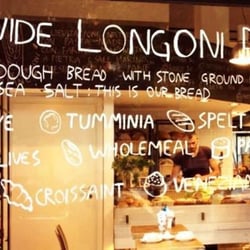 VIDE LONGONI
DOUGH BREAD WITH STONE GROUND
SEA SALT: THIS IS OUR BREAD
YE TUMMINIA SPELT
LIVES WHOLEMEAL PA
CROISSANT VENEZIAN